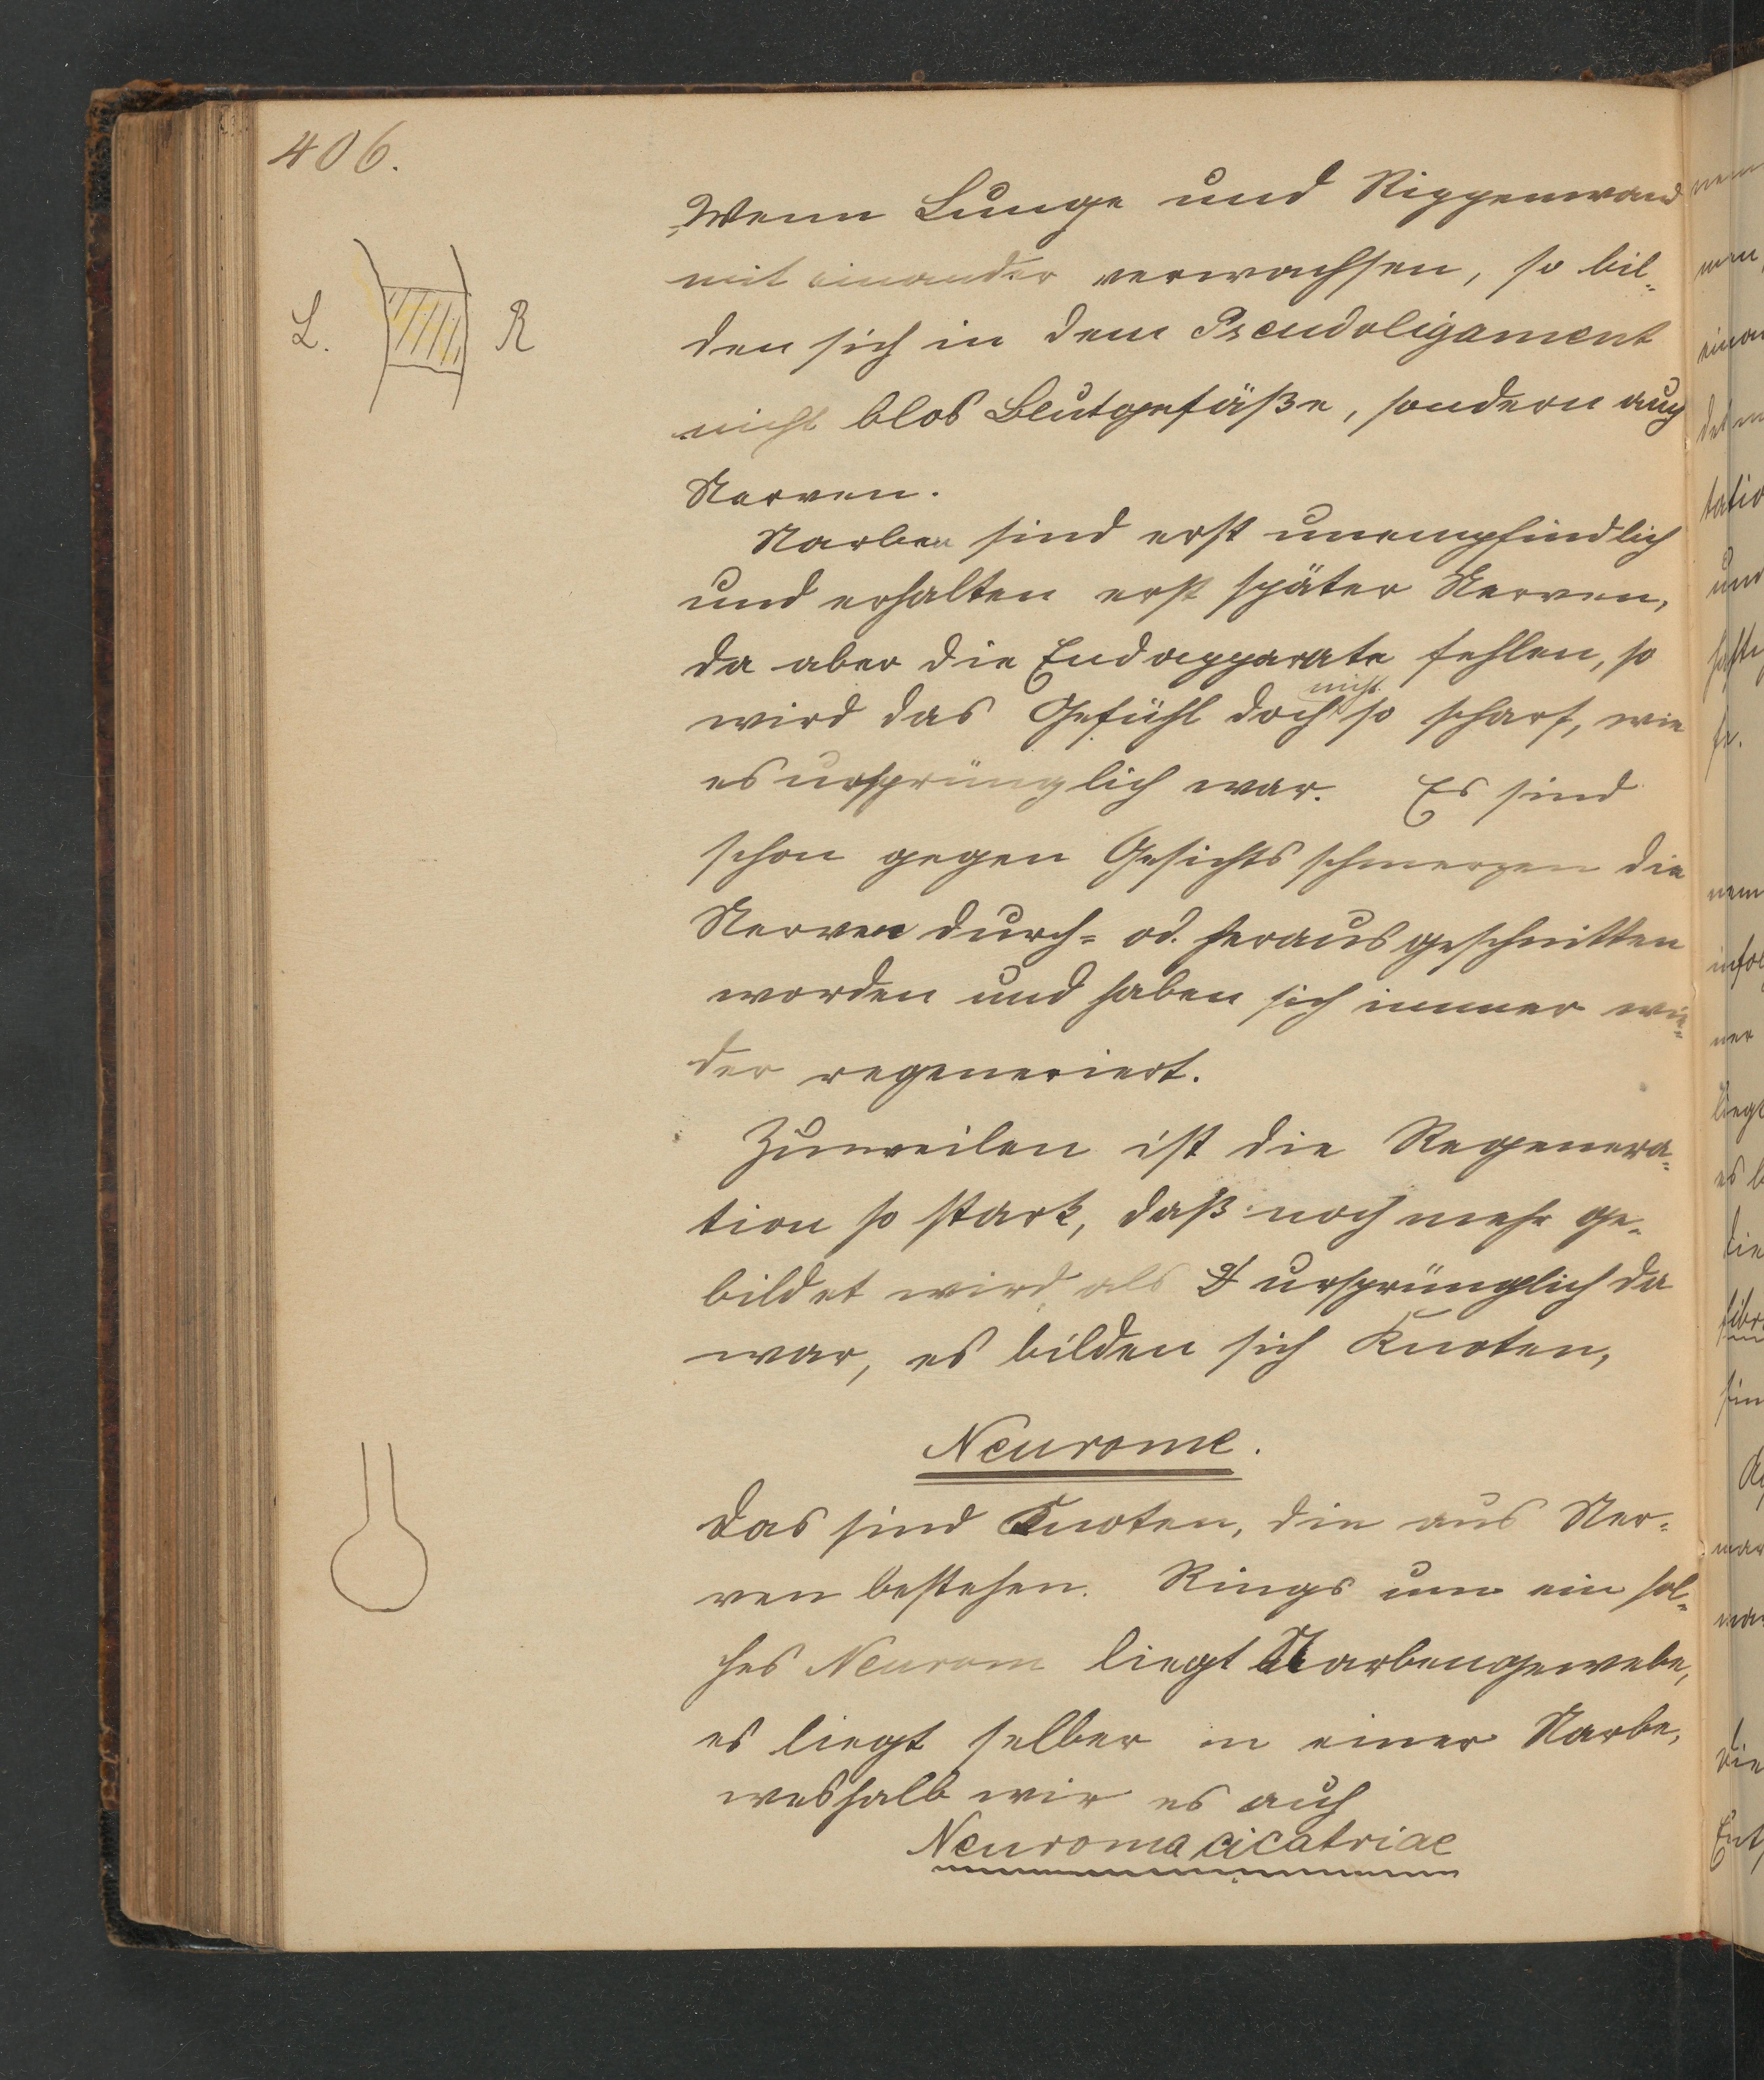 406.
Wenn Lunge und Rippenwand
mit einander verwachsen, so bil-
den sich in dem Pseudoligament
nicht blos Blutgefäße, sondern auch
Nerven.
L. R
Narben sind erst unempfindlich
und erhalten erst später Nerven,
da aber die Endapparate fehlen, so
nicht
wird das Gefühl doch so scharf, wie
es ursprünglich war. Es sind
schon gegen Gesichtsschmerzen die
Nerven durch- od. herausgeschnitten
worden und haben sich immer wie-
der regeneriert.
Zuweilen ist die Regenera-
tion so stark, daß noch mehr ge-
bildet wird als ursprünglich da
war, es bilden sich Knoten,
Neurome.
Das sind Knoten, die aus Ner-
ven bestehen. Rings um ein sol-
ches Neurom liegt Narbengewebe,
es liegt selber in einer Narbe,
weshalb wir es auch
Neuroma cicatriae